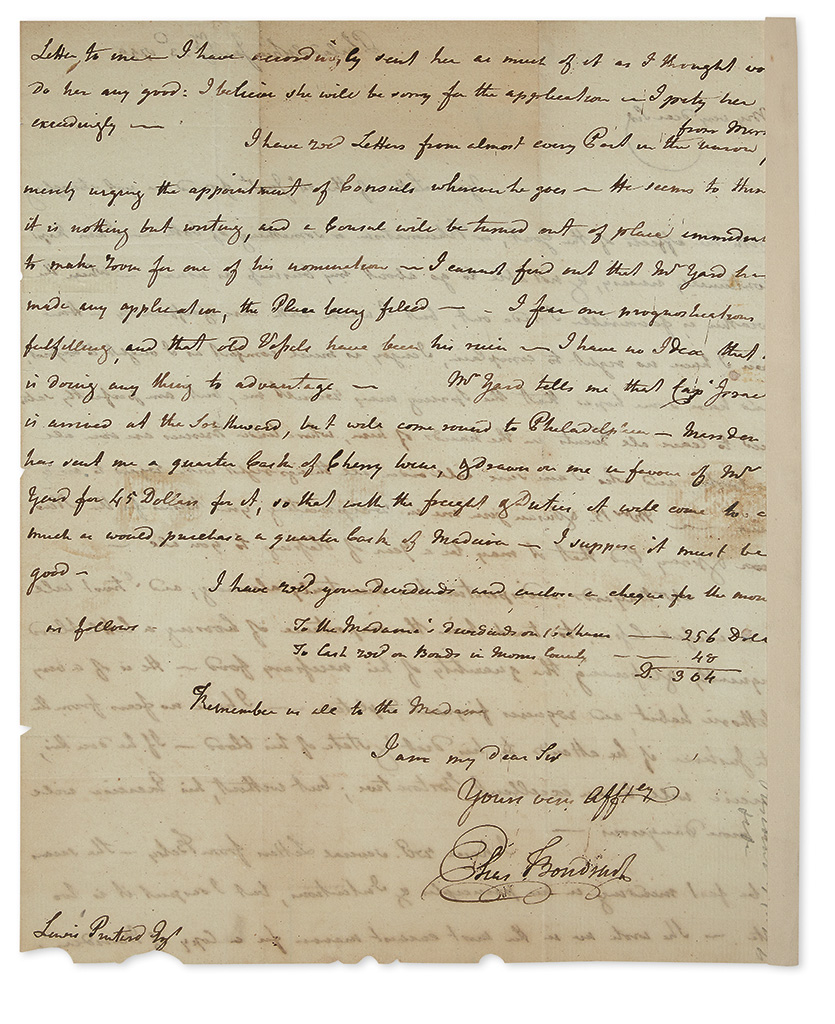 Letter, to me — I have accordingly sent her as much of it as I thought wo
do her any good: I believe she will be sorry for the application — I pity her
exceedingly —
from Mars
I have recd Letters from almost every Part in the union,
merely urging the appointment of Consuls wherever he goes — He seems to thin
it is nothing but writing, and a Consul will be turned out of place immediat
to make room for one of his nomination — I cannot find out that Mr Yard ha
made any application, the Place being filled — - I fear our prognostications
fulfilling, and that old Vessels have been his ruin — I have no Idea that
is doing any thing to advantage — Mr Yard tells me that Capt
is arrived at the Southward, but will come round to Philadelphia — Marsden
has sent me a quarter Cask of Cherry wine, & drawn on me in favour of Mr
Yard for 45 Dollars for it, so that with the freight & Duties it will come to a
much as would purchase a quarter Cask of Madeira — I suppose it must be
good —
I have recd. your dividends and enclose a cheque for the mon
as follows
To the Madame's dividends on Shares — 256 Dolla
To Cash recd on Bonds in Morris County — — 48
D. 304
Remember us all to the Madame
I am my dear Sir
Yours very Affty
Elias Boudinot
Lewis Pintard Esqr